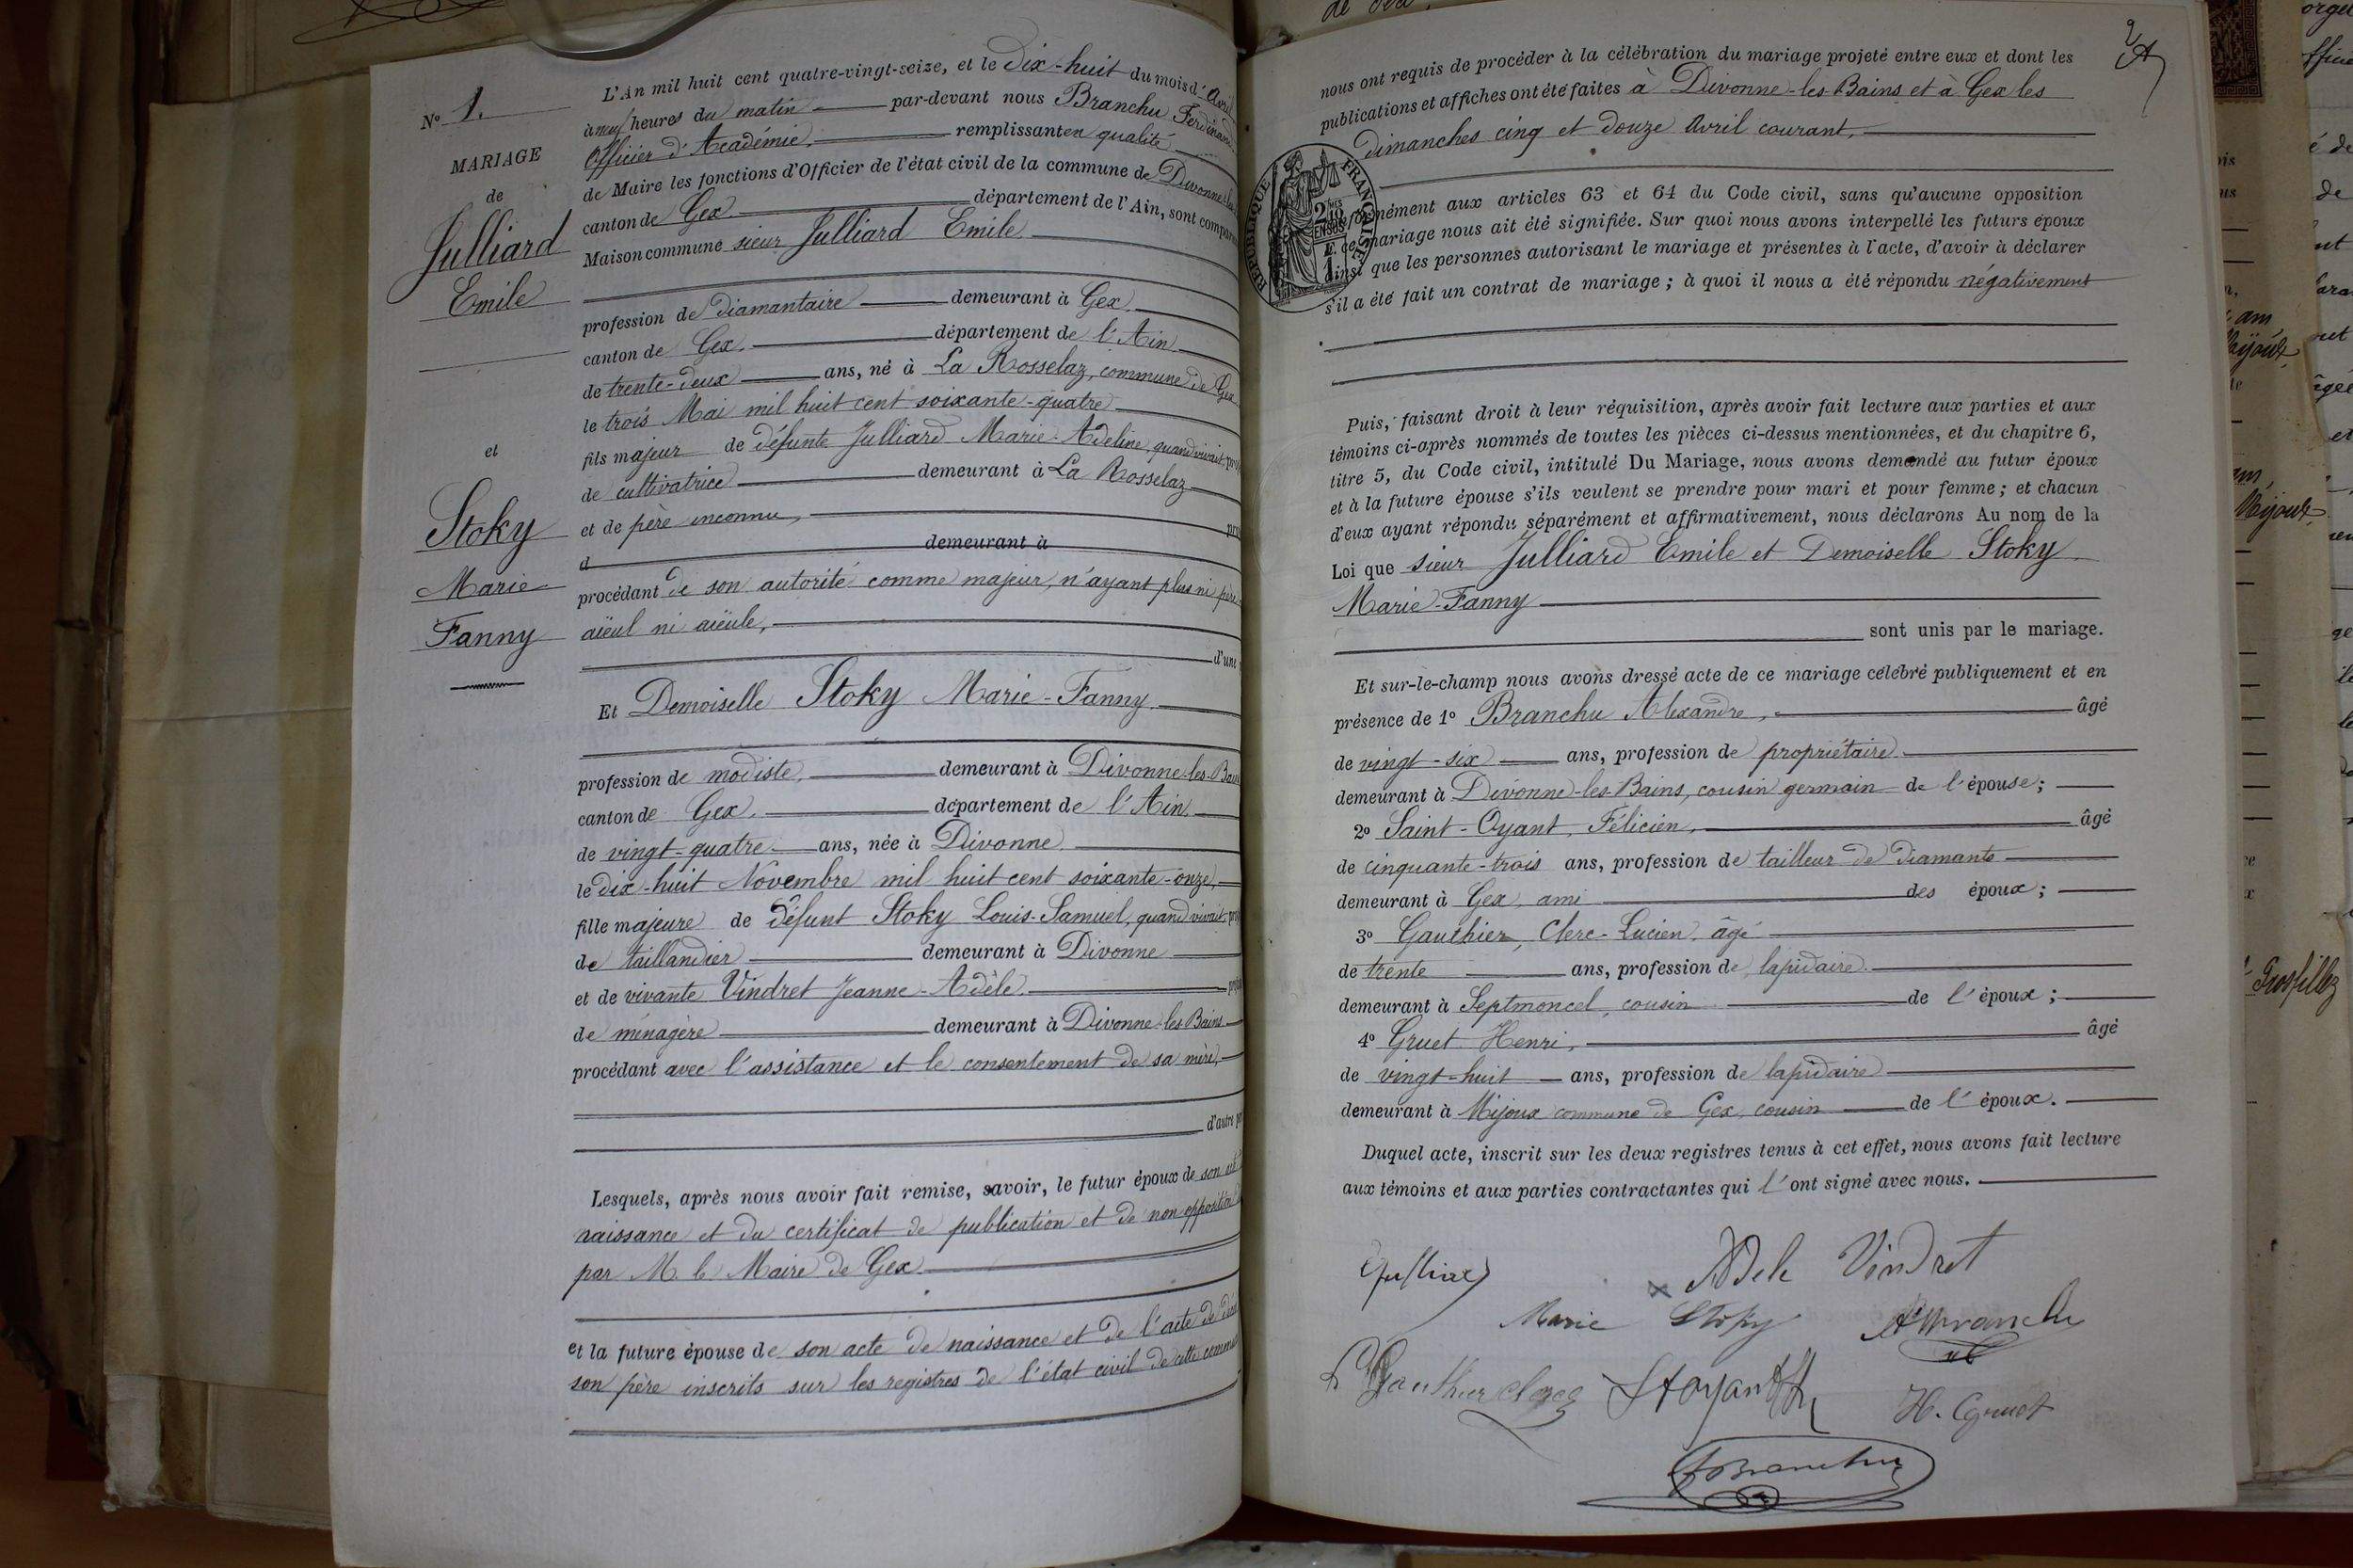 N° 1.
MARIAGE
de
Julliard
Emile
et
Stoky
Marie
Fanny
L'An mil huit cent quatre-vingt-seize, et le dix-huit du mois d'Avril
à neuf heures du matin par-devant nous Branchu Ferdinand
Officier d'Académie, remplissant en qualité
de Maire les fonctions d'Officier de l'état civil de la commune de Divonne-les
canton de Gex département de l'Ain, sont comparus
Maison commune sieur Julliard Emile
profession de diamantaire demeurant à Gex,
canton de Gex, département de l'Ain
de trente-deux ans, né à La Rosselaz, commune de Gex
le trois Mai mil huit cent soixante-quatre
fils majeur de défunte Julliard Marie-Adeline, quand vivait, pro
de cultivatrice demeurant à La Rosselaz
et de père inconnu, pro
d demeurant à
procédant de son autorité comme majeur, n'ayant plus ni père
aïeul ni aïeule,
d'une
Et Demoiselle Stoky Marie-Fanny
profession de modiste, demeurant à Divonne-les-Bains
canton de Gex, département de l'Ain,
de vingt-quatre ans, née à Divonne
le dix-huit Novembre mil huit cent soixante-onze,
fille majeure de défunt Stoky Louis-Samuel, quand vivait, pro
de taillandier demeurant à Divonne
et de vivante Vindret Jeanne-Adèle,
de ménagère demeurant à Divonne-les-Bains
procédant avec l'assistance et le consentement de sa mère,
d'autre
Lesquels, après nous avoir fait remise, savoir, le futur époux de son
naissance et du certificat de publication et de non opposition
par M. le Maire de Gex
et la future épouse de son acte de naissance et de l'acte de
son père inscrits sur les registres de l'état civil de cette
2
nous ont requis de procéder à la célébration du mariage projeté entre eux et dont les
publications et affiches ont été faites à Divonne-les-Bains et à Gex les
dimanches cinq et douze Avril courant,
RÉPUBLIQUE FRANÇAISE
2/10 EN SUS
1 F.
conformément aux articles 63 et 64 du Code civil, sans qu'aucune opposition
à ce mariage nous ait été signifiée. Sur quoi nous avons interpellé les futurs époux
ainsi que les personnes autorisant le mariage et présentes à l'acte, d'avoir à déclarer
s'il a été fait un contrat de mariage ; à quoi il nous a été répondu négativement
Puis, faisant droit à leur réquisition, après avoir fait lecture aux parties et aux
témoins ci-après nommés de toutes les pièces ci-dessus mentionnées, et du chapitre 6,
titre 5, du Code civil, intitulé Du Mariage, nous avons demandé au futur époux
et à la future épouse s'ils veulent se prendre pour mari et pour femme ; et chacun
d'eux ayant répondu séparément et affirmativement, nous déclarons Au nom de la
Loi que sieur Julliard Emile et Demoiselle Stoky
Marie-Fanny
sont unis par le mariage.
Et sur-le-champ nous avons dressé acte de ce mariage célébré publiquement et en
présence de 1° Branchu Alexandre, âgé
de vingt-six ans, profession de propriétaire
demeurant à Divonne-les-Bains, cousin germain de l'épouse ;
2° Saint-Oyant, Félicien, âgé
de cinquante-trois ans, profession de tailleur de diamants
demeurant à Gex, ami des époux ;
3° Gauthier, Clerc-Lucien, âgé
de trente ans, profession de lapidaire
demeurant à Septmoncel, cousin de l'époux ;
4° Gruet Henri, âgé
de vingt-huit ans, profession de lapidaire
demeurant à Mijoux commune de Gex, cousin de l'époux.
Duquel acte, inscrit sur les deux registres tenus à cet effet, nous avons fait lecture
aux témoins et aux parties contractantes qui l'ont signé avec nous.
Julliard
Adele Vindret
Marie Stoky
A Branchu
Gauthier clerc
St Oyant
H. Gruet
Branchu